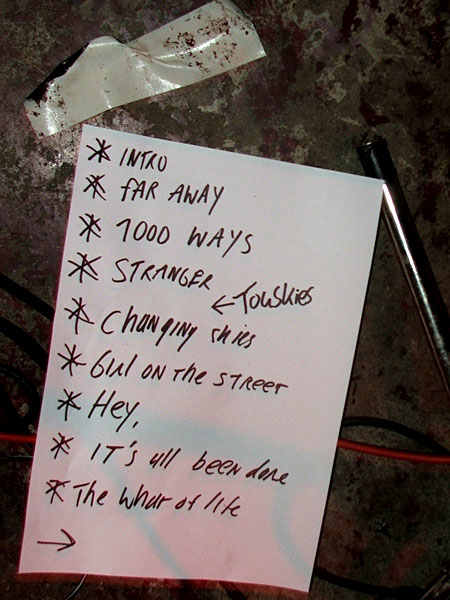 * INTRO
* FAR AWAY
* 1000 WAYS
* STRANGER
←
* Changing skies
* Girl ON The STREET
* Hey,
* IT's all been done
* The of life
→